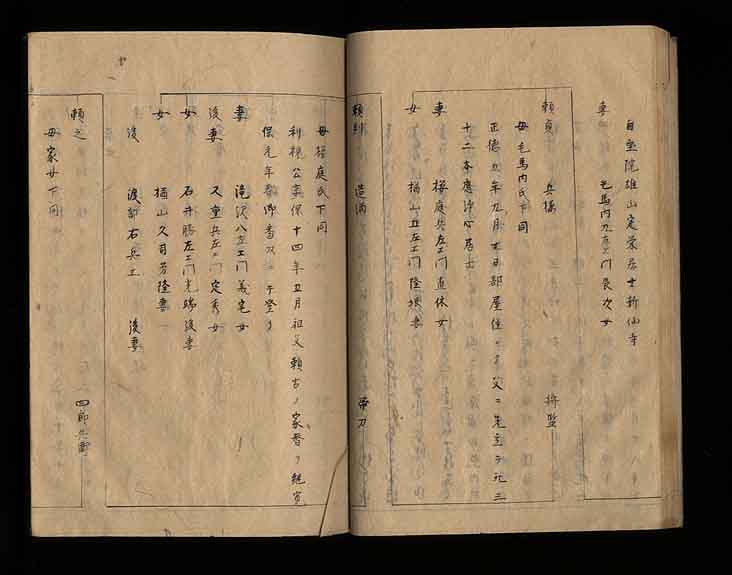 自照院雄山定栄居士新仙寺
妻 毛馬内九左エ門長次女
頼貞 兵橘 将監
母毛馬内氏下同
正徳五年九月七日部屋住ニテ父ニ先立テ死三
十二本鷹浄心居士
妻 桜庭兵左エ門直休女
女 楢山五左エ門隆 妻
造酒 帯刀
母桜庭氏下同
利視公享保十四年五月祖父頼吉ノ家督ヲ継寛
保元年 御 テ登リ
妻 滝沢八左エ門義宅女
後妻 又重兵左エ門定秀女
女 石井勝左エ門光端後妻
女 楢山久司芳隆妻
後 渡部右兵エ 後妻
頼之 四郎兵衛
母家女下同